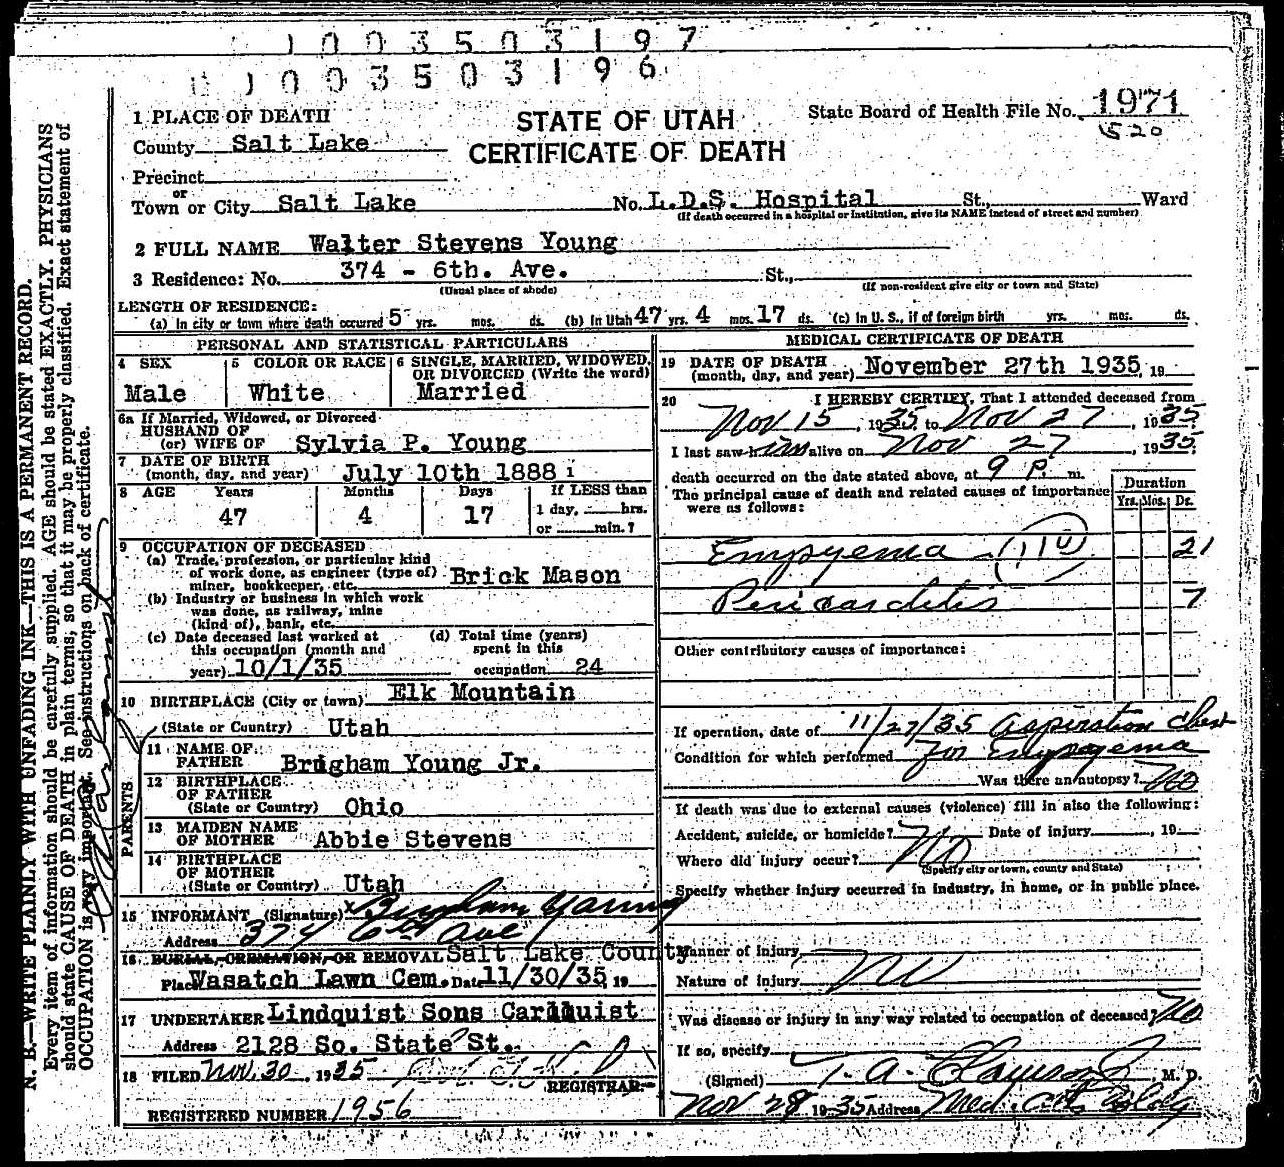 1 0 0 3 5 0 3 1 9 7
1 0 0 3 5 0 3 1 9 6
STATE OF UTAH
CERTIFICATE OF DEATH
State Board of Health File No. 1971
520
1 PLACE OF DEATH
County Salt Lake
Precinct
or
Town or City Salt Lake No. L.D.S. Hospital St., Ward
(If death occurred in a hospital or institution, give its NAME instead of street and number)
2 FULL NAME Walter Stevens Young
3 Residence: No. 374 - 6th. Ave. St.,
(Usual place of abode) (If non-resident give city or town and State)
LENGTH OF RESIDENCE:
(a) In city or town where death occurred 5 yrs. mos. ds. (b) In Utah 47 yrs. 4 mos. 17 ds. (c) In U. S., if of foreign birth yrs. mos. ds.
PERSONAL AND STATISTICAL PARTICULARS
4 SEX Male
5 COLOR OR RACE White
6 SINGLE, MARRIED, WIDOWED,
OR DIVORCED (Write the word)
Married
6a If Married, Widowed, or Divorced
HUSBAND OF
(or) WIFE OF Sylvia P. Young
7 DATE OF BIRTH
(month, day, and year) July 10th 1888
8 AGE Years Months Days If LESS than
47 4 17 1 day, hrs.
or min.?
9 OCCUPATION OF DECEASED
(a) Trade, profession, or particular kind
of work done, as engineer (type of)
miner, bookkeeper, etc. Brick Mason
(b) Industry or business in which work
was done, as railway, mine
(kind of), bank, etc.
(c) Date deceased last worked at
this occupation (month and
year) 10/1/35
(d) Total time (years)
spent in this
occupation 24
10 BIRTHPLACE (City or town) Elk Mountain
(State or Country) Utah
PARENTS
11 NAME OF
FATHER Brigham Young Jr.
12 BIRTHPLACE
OF FATHER
(State or Country) Ohio
13 MAIDEN NAME
OF MOTHER Abbie Stevens
14 BIRTHPLACE
OF MOTHER
(State or Country) Utah
15 INFORMANT (Signature) x Brigham Young
Address 374 6th Ave
16 BURIAL, CREMATION, OR REMOVAL Salt Lake County
Place Wasatch Lawn Cem. Date 11/30/35, 19
17 UNDERTAKER Lindquist Sons Carlquist
Address 2128 So. State St.
18 FILED Nov. 30, 1935
REGISTRAR
REGISTERED NUMBER 1956
MEDICAL CERTIFICATE OF DEATH
19 DATE OF DEATH
(month, day, and year) November 27th 1935, 19
20 I HEREBY CERTIFY, That I attended deceased from
Nov 15, 1935, to Nov 27, 1935.
I last saw him alive on Nov 27, 1935.
death occurred on the date stated above, at 9 P. m.
The principal cause of death and related causes of importance
were as follows:
Duration
Yrs. Mos. Ds.
Empyema - 110 21
Pericarditis 7
Other contributory causes of importance:
If operation, date of 11/27/35 Aspiration Chest
Condition for which performed For Empyema
Was there an autopsy? No
If death was due to external causes (violence) fill in also the following:
Accident, suicide, or homicide? No Date of injury , 19
Where did injury occur?
(Specify city or town, county and State)
Specify whether injury occurred in industry, in home, or in public place.
Manner of injury
Nature of injury
Was disease or injury in any way related to occupation of deceased? No
If so, specify
(Signed) T. A. Clawson Jr M. D.
Nov 28 1935 Address Med. Arts Bldg
N. B.—WRITE PLAINLY WITH UNFADING INK—THIS IS A PERMANENT RECORD.
Every item of information should be carefully supplied. AGE should be stated EXACTLY. PHYSICIANS
should state CAUSE OF DEATH in plain terms, so that it may be properly classified. Exact statement of
OCCUPATION is very important. See instructions on back of certificate.